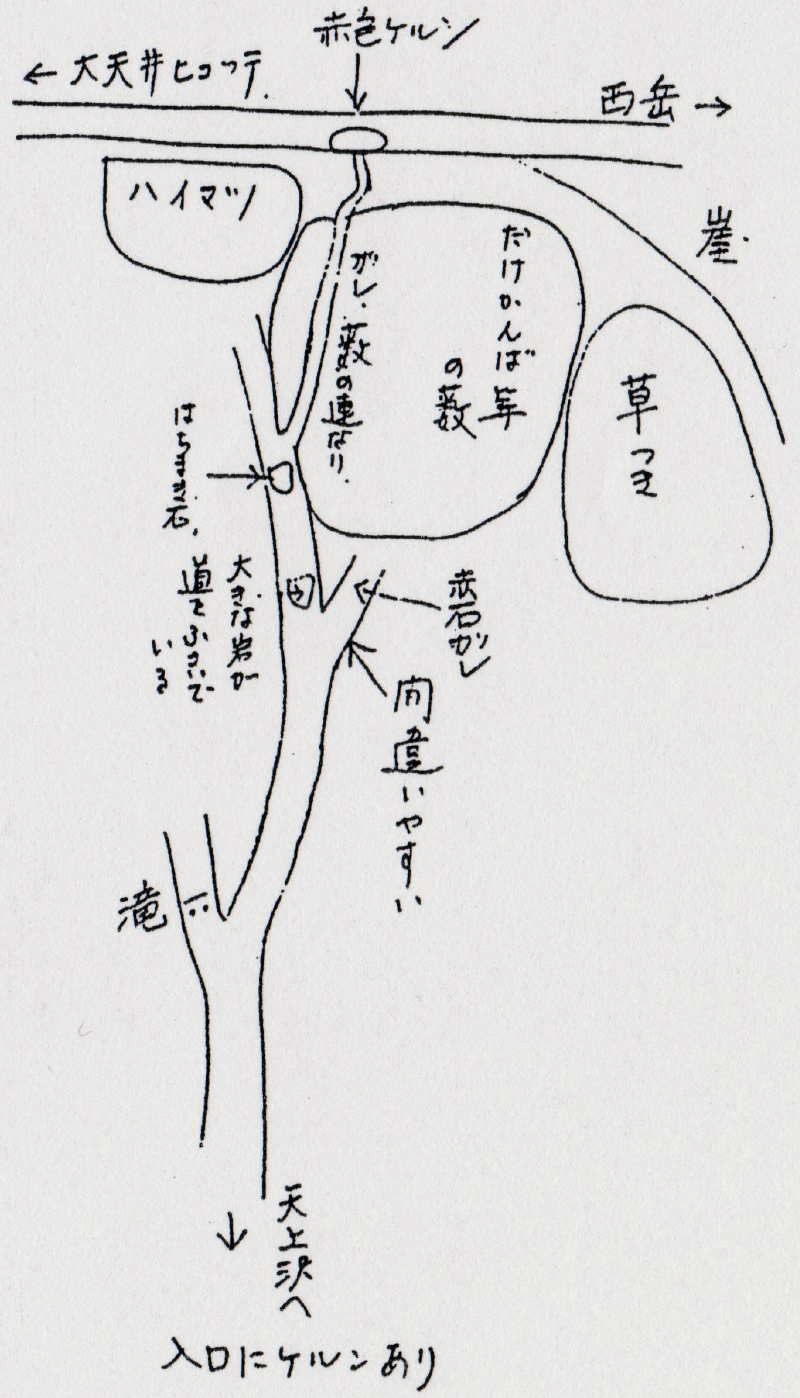 赤色ケルン
← 大天井ヒュッテ.
西岳 →
ハイマツ
崖.
ガレ.藪の連なり.
だけかんば等
の藪
草つき
はちまき石.
大きな岩が
道をふさいで
いる
赤石ガレ
間違いやすい
滝
天上沢へ
入口にケルンあり